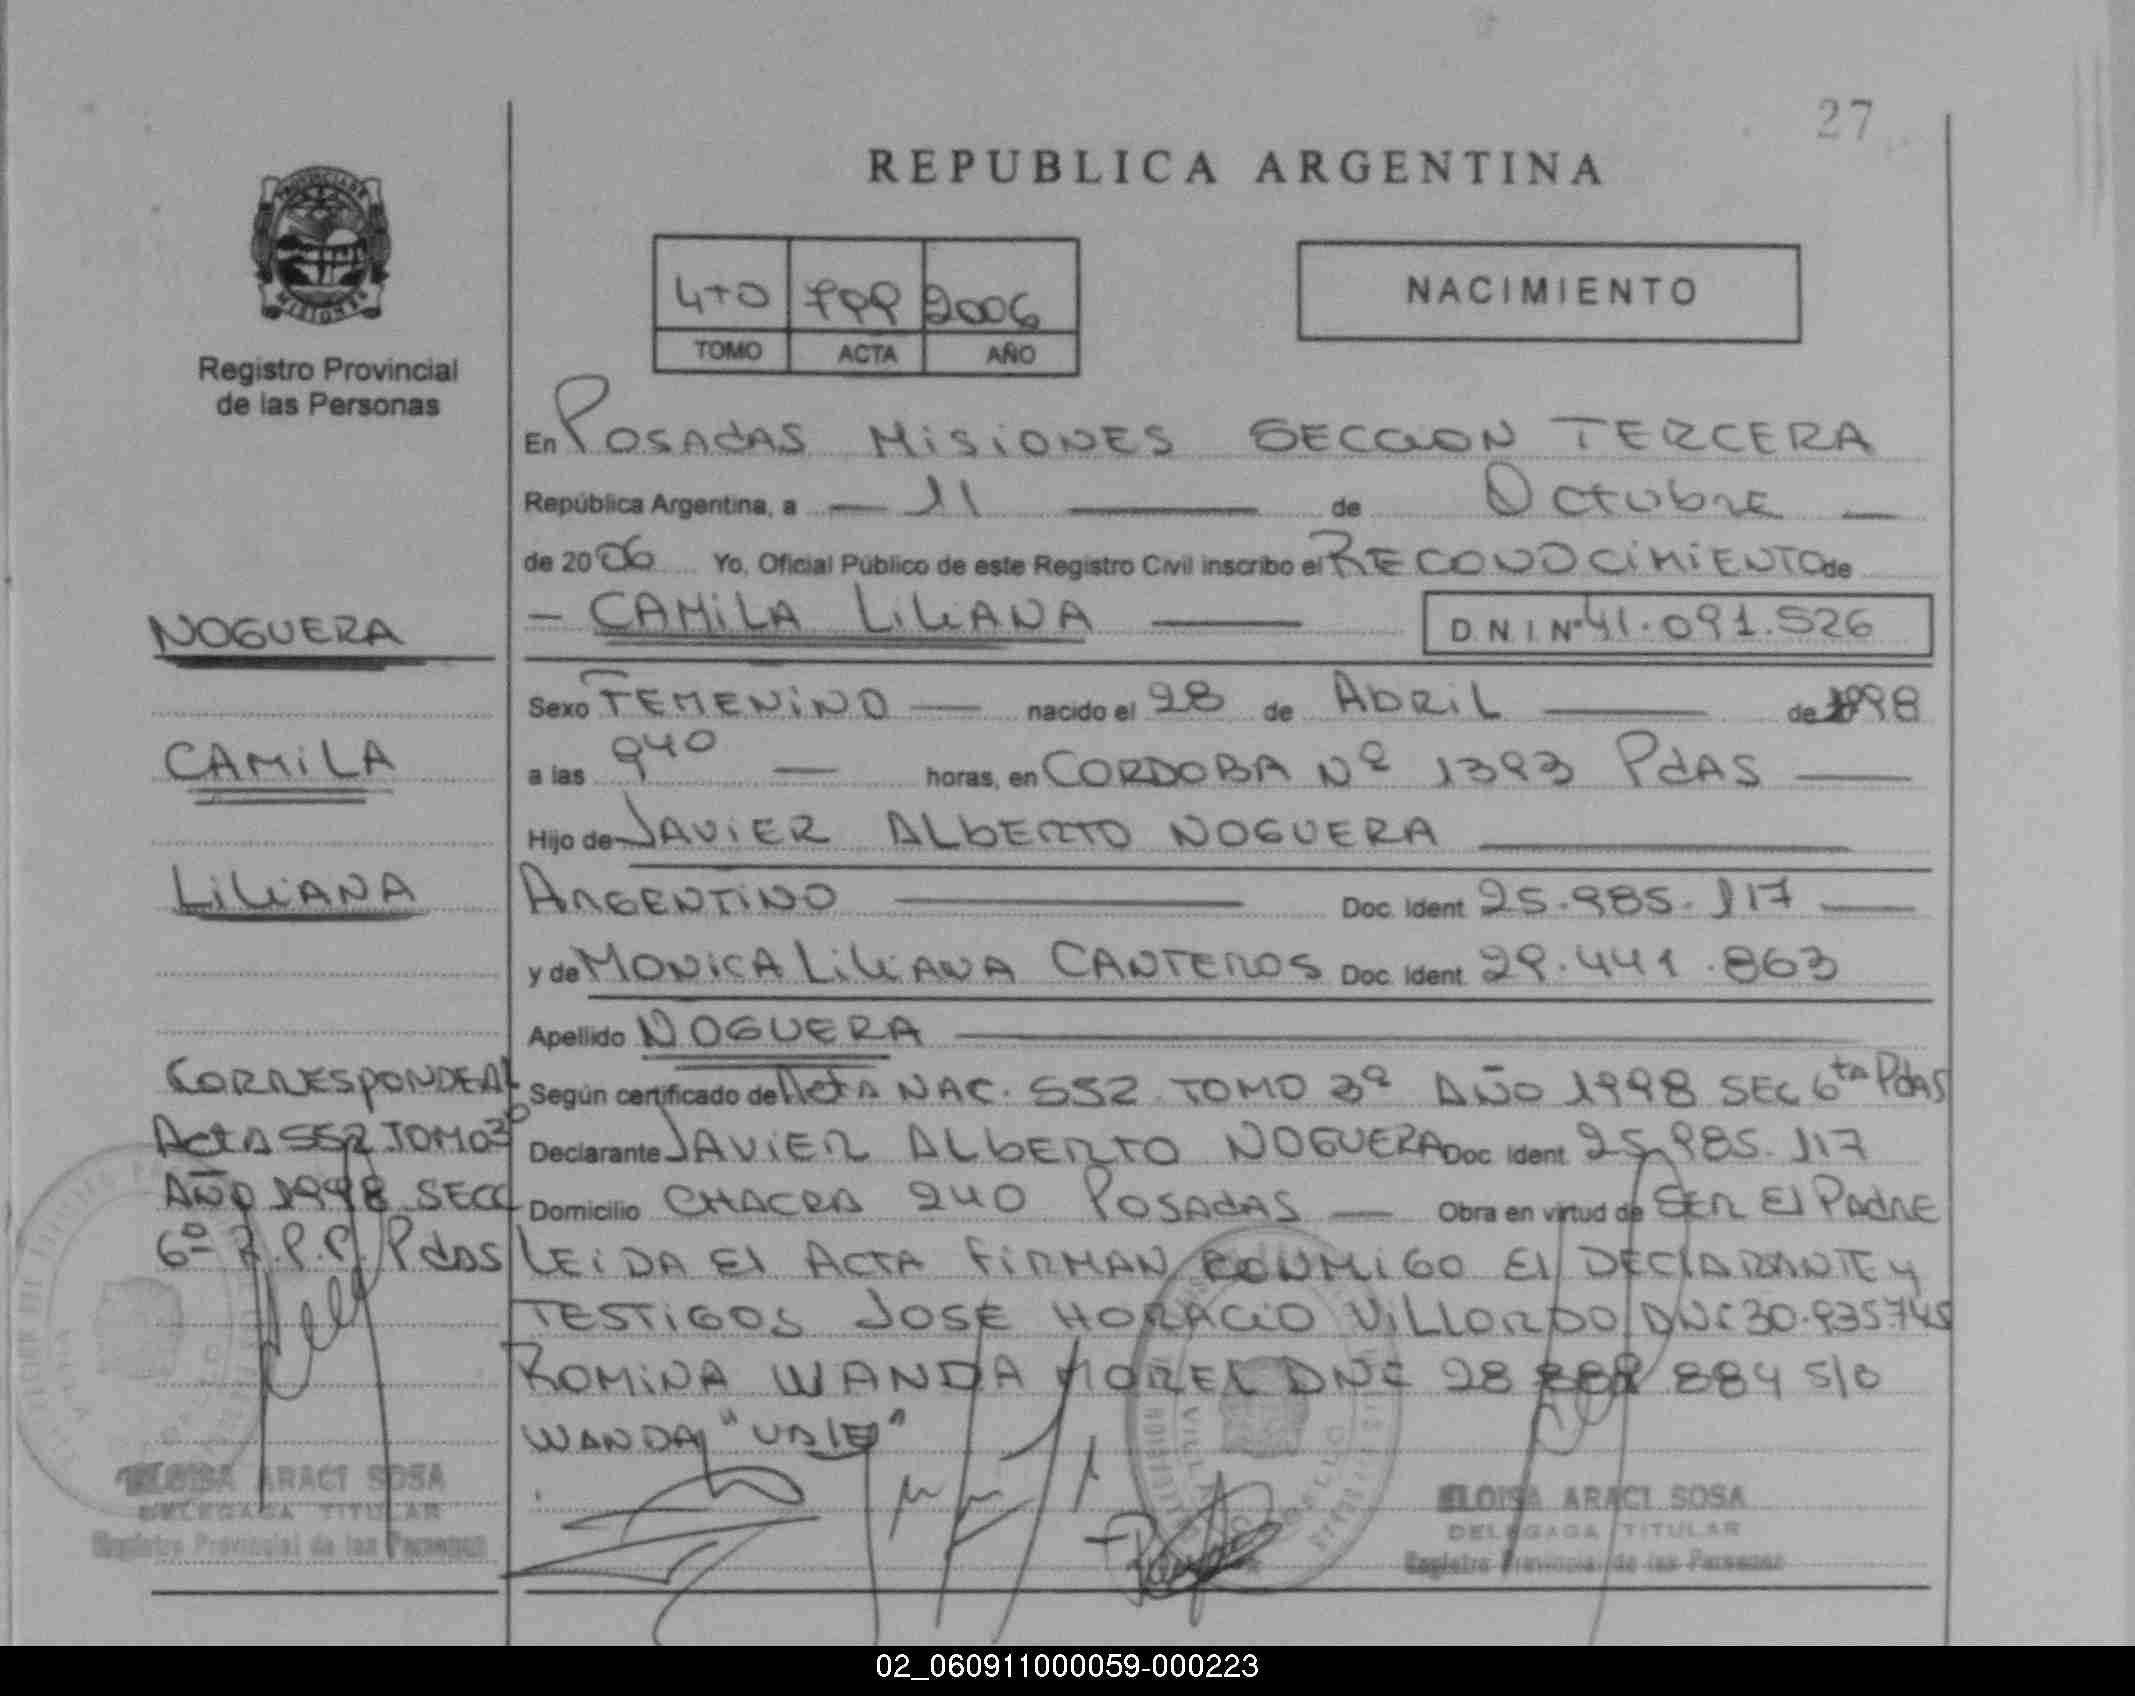 27
REPUBLICA ARGENTINA
PROVINCIA DE
MISIONES
Registro Provincial
de las Personas
4TO 799 2006
TOMO ACTA AÑO
NACIMIENTO
En POSADAS MISIONES SECCION TERCERA
República Argentina, a 11 de Octubre
de 2006 Yo, Oficial Público de este Registro Civil inscribo el RECONOCIMIENTO de
CAMILA LILIANA D.N.I. Nº 41.091.526
Sexo FEMENINO nacido el 28 de ABRIL de 1998
a las 9 40 horas, en CORDOBA Nº 1393 PdAS
Hijo de JAVIER ALBERTO NOGUERA
ARGENTINO Doc. Ident. 25.985.117
y de MONICA LILIANA CANTEROS Doc. Ident. 29.441.863
Apellido NOGUERA
Según certificado de Acta NAC. 552 TOMO 3º AÑO 1998 SEC 6ta PdAS
Declarante JAVIER ALBERTO NOGUERA Doc. Ident. 25.985.117
Domicilio CHACRA 240 POSADAS Obra en virtud de SER El PADRE
LEIDA El ACTA FIRMAN CONMIGO El DECLARANTE y
TESTIGOS JOSE HORACIO VILLORDO DNI 30.935745
ROMINA WANDA MOREL DNI 28 884 S/B
WANDA "VALE"
NOGUERA
CAMILA
LILIANA
CORRESPONDE Al
Acta 552 TOMO 3º
AÑO 1998 SECC
6º R.P.P. PdAS
ELOISA ARACI SOSA
DELEGADA TITULAR
Registro Provincial de las Personas
ELOISA ARACI SOSA
DELEGADA TITULAR
Registro Provincial de las Personas
02_060911000059-000223